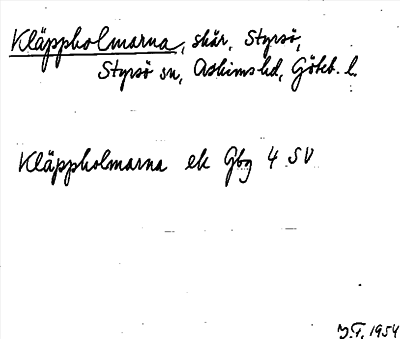 Kläppholmarna, skär, Styrsö,
Styrsö sn, Askims hd, Göteb. l.
Kläppholmarna ek Gbg 4 SV
J.F. 1954